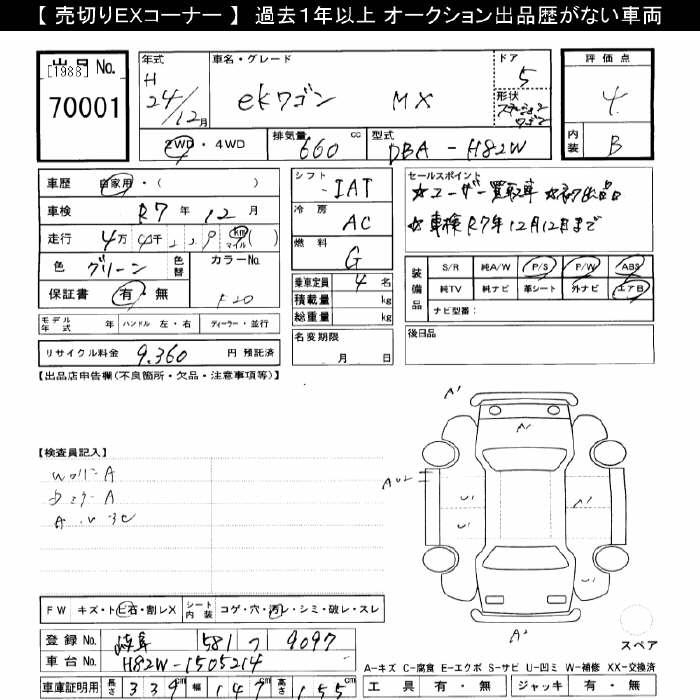 【 売切りEXコーナー 】 過去1年以上 オークション出品歴がない車両
出品 No.
[1988]
70001
年式
H
24/12月
車名・グレード
ekワゴン MX
ドア
5
形状
ステーションワゴン
評価点
4
内装
B
2WD・4WD
排気量 660 cc
型式 DBA - H82W
車歴 自家用・( )
車検 R7 年 12 月
走行 4万 4千 km マイル ( )
色 グリーン 色替
カラーNo. F20
保証書 有・無
モデル年式 年 ハンドル 左・右 ディーラー・並行
リサイクル料金 9,360 円 預託済
シフト IAT
冷房 AC
燃料 G
乗車定員 4 名
積載量 kg
総重量 kg
名変期限
月 日
セールスポイント
☆ユーザー買取車 ☆初出品
☆車検R7年12月12日まで
装備品
S/R 純A/W P/S P/W ABS
純TV 純ナビ 革シート 外ナビ エアB
ナビ型番:
後日品
【出品店申告欄(不良箇所・欠品・注意事項等)】
【検査員記入】
A1
A1
AU2
U1
U1
U1
A1
U1
A2
スペア
FW キズ・トビ石・割レX
シート内装 コゲ・穴・汚レ・シミ・破レ・スレ
登録No. 岐阜 581 つ 9097
車台No. H82W-1505214
車庫証明用 長さ 339 cm 幅 147 cm 高さ 155 cm
A-キズ C-腐食 E-エクボ S-サビ U-凹ミ W-補修 XX-交換済
工具 有・無 ジャッキ 有・無